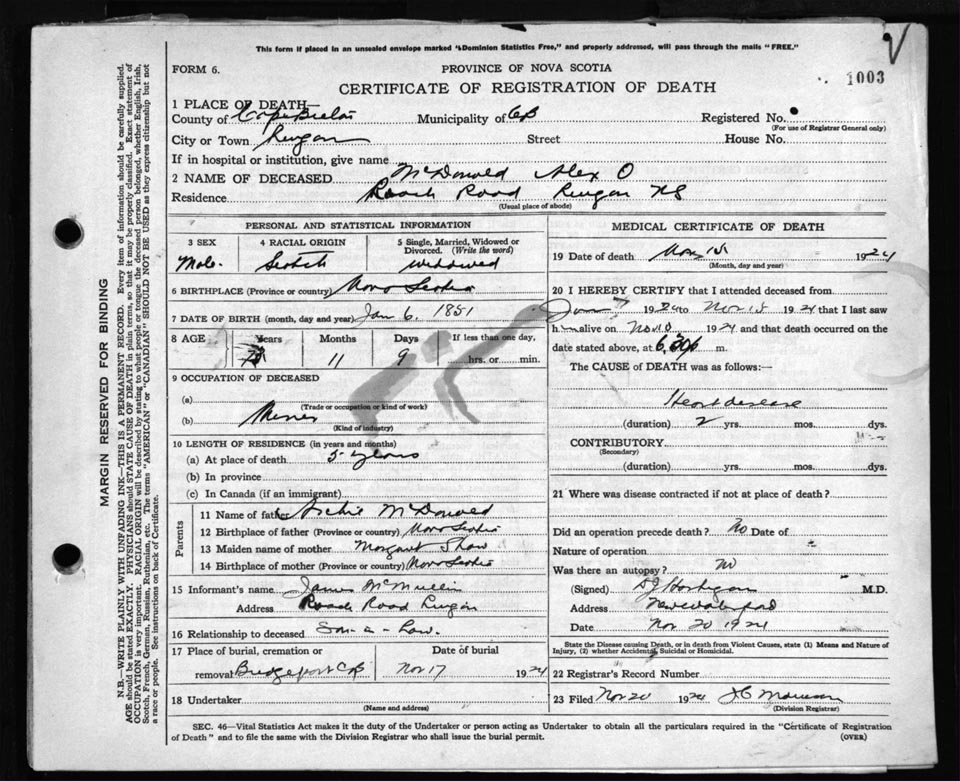 This form if placed in an unsealed envelope marked "Dominion Statistics Free," and properly addressed, will pass through the mails "FREE."
FORM 6.
PROVINCE OF NOVA SCOTIA
1003
CERTIFICATE OF REGISTRATION OF DEATH
1 PLACE OF DEATH—
County of Cape Breton Municipality of CB Registered No.
(For use of Registrar General only)
City or Town Lingan Street House No.
If in hospital or institution, give name
2 NAME OF DECEASED McDonald Alex O
Residence Roach Road Lingan NS
(Usual place of abode)
PERSONAL AND STATISTICAL INFORMATION
3 SEX 4 RACIAL ORIGIN 5 Single, Married, Widowed or Divorced. (Write the word)
Male Scotch widowed
6 BIRTHPLACE (Province or country) Nova Scotia
7 DATE OF BIRTH (month, day and year) Jan 6, 1851
8 AGE Years Months Days If less than one day,
73 11 9 hrs. or min.
9 OCCUPATION OF DECEASED
(a)
(Trade or occupation or kind of work)
(b) Miner
(Kind of industry)
10 LENGTH OF RESIDENCE (in years and months)
(a) At place of death 5 years
(b) In province
(c) In Canada (if an immigrant)
Parents
11 Name of father Archie McDonald
12 Birthplace of father (Province or country) Nova Scotia
13 Maiden name of mother Margaret Shaw
14 Birthplace of mother (Province or country) Nova Scotia
15 Informant's name James McMullin
Address Roach Road Lingan
16 Relationship to deceased Son-n-Law.
17 Place of burial, cremation or removal Date of burial
Bridgeport CB Nov 17 1924
18 Undertaker
(Name and address)
MEDICAL CERTIFICATE OF DEATH
19 Date of death Nov 15 1924
(Month, day and year)
20 I HEREBY CERTIFY that I attended deceased from
1924 to Nov 15 1924 that I last saw
him alive on Nov 1924 and that death occurred on the
date stated above, at 6.30p m.
The CAUSE of DEATH was as follows:—
Heart disease
(duration) 2 yrs. mos. dys.
CONTRIBUTORY
(Secondary)
(duration) yrs. mos. dys.
21 Where was disease contracted if not at place of death?
Did an operation precede death? No Date of
Nature of operation
Was there an autopsy? no
(Signed) M.D.
Address New Waterford
Date Nov 20 1924
State the Disease causing Death, or in death from Violent Causes, state (1) Means and Nature of Injury, (2) whether Accidental, Suicidal or Homicidal.
22 Registrar's Record Number
23 Filed Nov 20 1924
(Division Registrar)
SEC. 46—Vital Statistics Act makes it the duty of the Undertaker or person acting as Undertaker to obtain all the particulars required in the "Certificate of Registration
of Death" and to file the same with the Division Registrar who shall issue the burial permit. (OVER)
MARGIN RESERVED FOR BINDING
N.B.—WRITE PLAINLY WITH UNFADING INK—THIS IS A PERMANENT RECORD. Every item of information should be carefully supplied.
AGE should be stated EXACTLY. PHYSICIANS should STATE CAUSE OF DEATH in plain terms, so that it may be properly classified. Exact statement of
OCCUPATION is very important. RACIAL ORIGIN will be described by stating to what people or tongue the deceased person belonged, whether English, Irish,
Scotch, French, German, Russian, Ruthenian, etc. The terms "AMERICAN" or "CANADIAN" SHOULD NOT BE USED as they express citizenship but not
a race or people. See instructions on back of Certificate.